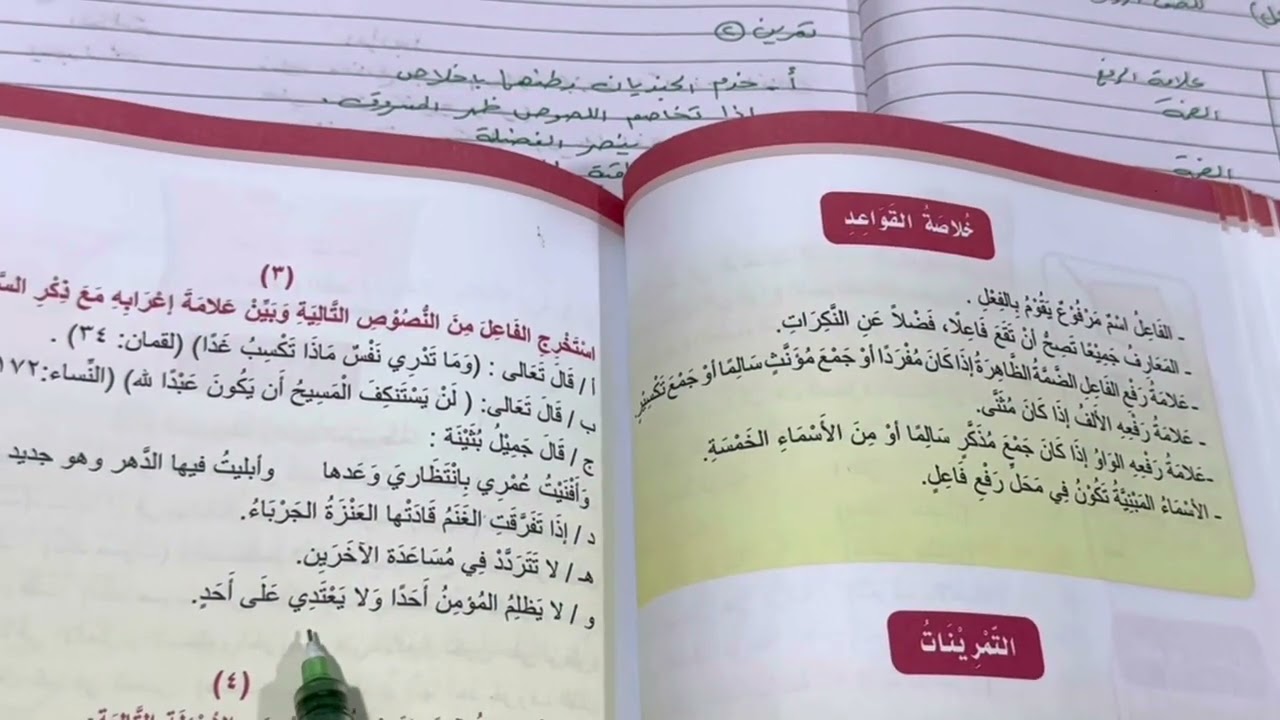 علامة الرفع
الضمة
الضمة
تمرين ②
أ - خدم الجنديان وطنهما بإخلاص
إذا تخاصم اللصوص ظهر المسروق.
خُلاصَةُ القَوَاعِدِ
- الفَاعِلُ اسْمٌ مَرْفُوعٌ يَقُوْمُ بِالفِعْلِ .
- المَعَارِفُ جَمِيْعًا تَصِحُّ أنْ تَقَعَ فَاعِلًا، فَضْلاً عَنِ النَّكِرَاتِ.
- عَلامَةُ رَفْعِ الفَاعِلِ الضَّمَّةُ الظَّاهِرَةُ إذَا كَانَ مُفْرَدًا أوْ جَمْعَ مُؤَنَّثٍ سَالِمًا أوْ جَمْعَ تَكْسِيْرٍ.
- عَلامَةُ رَفْعِهِ الألْفُ إذَا كَانَ مُثَنًّى.
-عَلامَةُ رَفْعِهِ الوَاوُ إذَا كَانَ جَمْعَ مُذَكَّرٍ سَالِمًا أوْ مِنَ الأَسْمَاءِ الخَمْسَةِ.
- الأسْمَاءُ المَبْنِيَّةُ تَكُوْنُ فِي مَحَلِّ رَفْعِ فَاعِلٍ.
التَّمْرِيْنَاتُ
(٣)
اسْتَخْرِجِ الفَاعِلَ مِنَ النُّصُوْصِ التَّالِيَةِ وَبَيِّنْ عَلامَةَ إعْرَابِهِ مَعَ ذِكْرِ
أ / قَالَ تَعَالى : (وَمَا تَدْرِي نَفْسٌ مَاذَا تَكْسِبُ غَدًا) (لقمان: ٣٤) .
ب / قَالَ تَعَالى: ( لَنْ يَسْتَنكِفَ الْمَسِيْحُ أَن يَكُونَ عَبْدًا لله) (النِّساء:١٧٢
ج / قَالَ جَمِيْلُ بُثَيْنَة :
وَأَفْنَيْتُ عُمْرِي بِانْتَظَارِيَ وَعَدها وأبليتُ فيها الدَّهر وهو جديد
د / إذَا تَفَرَّقَتِ الغَنَمُ قَادَتْها العَنْزَةُ الجَرْبَاءُ.
هـ / لا تَتَرَدَّدْ فِي مُسَاعَدَة الآخَرَيِن.
و / لا يَظْلِمُ المُؤْمِنُ أَحَدًا وَلا يَعْتَدِي عَلَى أَحَدٍ.
(٤)